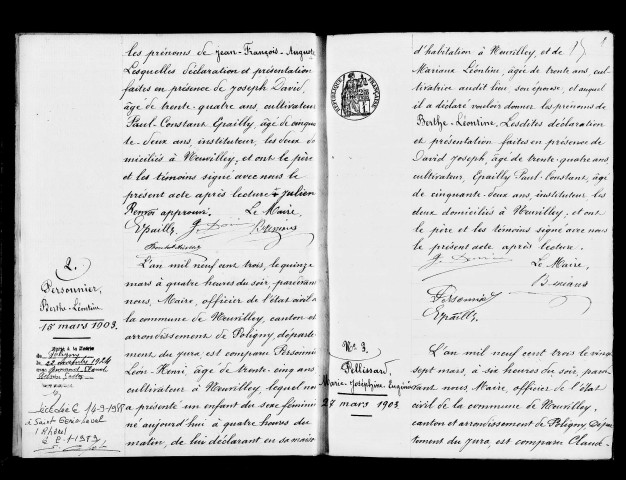 les prénoms de Jean-François-Auguste
Lesquelles déclaration et présentation
faites en présence de Joseph David,
âgé de trente-quatre ans, cultivateur
Paul-Constant Epailly, âgé de cinquan
te-deux ans, instituteur, les deux do
miciliés à Neuvilley, et ont le père
et les témoins signé avec nous le
présent acte après lecture Julien
Renvoi approuvé. Le Maire,
Epailly J. David
2.
Personnier,
Berthe-Léontine
15 mars 1903.
Poligny
22 décembre 1924
Décédée le 14-9-1988
à Saint Genis Laval
(Rhône)
L'an mil neuf cent trois, le quinze
mars à quatre heures du soir, par devant
nous, Maire, officier de l'état civil de
la commune de Neuvilley, canton et
arrondissement de Poligny, départe
ment du Jura, est comparu Personnier
Léon-Henri, âgé de trente-cinq ans
cultivateur à Neuvilley, lequel nous
a présenté un enfant du sexe féminin
né aujourd'hui à quatre heures du
matin, de lui déclarant en sa maison
d'habitation à Neuvilley, et de
Mariaux Léontine, âgée de trente ans, cul
tivatrice audit lieu, son épouse, et auquel
il a déclaré vouloir donner les prénoms de
Berthe-Léontine, Lesdites déclaration
et présentation faites en présence de
David Joseph, âgé de trente-quatre ans
cultivateur, Epailly Paul-Constant, âgé
de cinquante-deux ans, instituteur les
deux domiciliés à Neuvilley, et ont
le père et les témoins signé avec nous
le présent acte après lecture.
J. David Le Maire,
Personnier
Epailly
RÉPUBLIQUE FRANÇAISE
N° 3.
Pellissard,
Marie-Joséphine-Eugénie
27 mars 1903.
L'an mil neuf cent trois le vingt
sept mars, à six heures du soir, par de
vant nous, Maire, officier de l'état
civil de la commune de Neuvilley,
canton et arrondissement de Poligny, Dépar
tement du Jura, est comparu Claude-